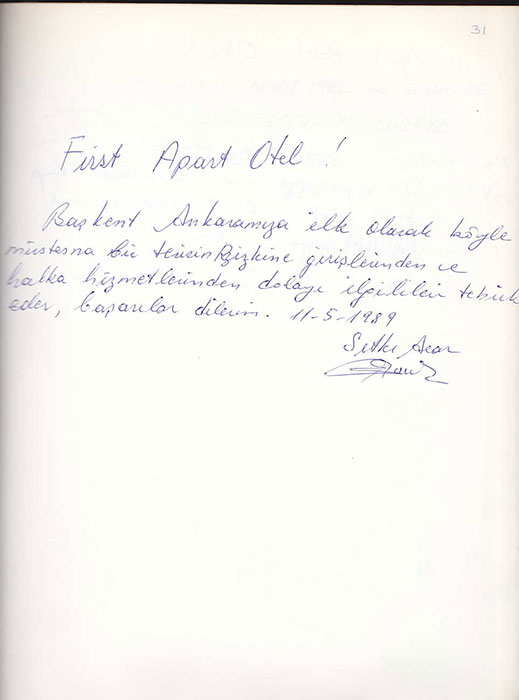 31
First Apart Otel !
Başkent Ankaramıza ilk olarak böyle
müstesna bir tesisin girişlerinden ve
halka hizmetlerinden dolayı ilgilileri tebrik
eder, başarılar dilerim. 11-5-1989
Setkı Acar